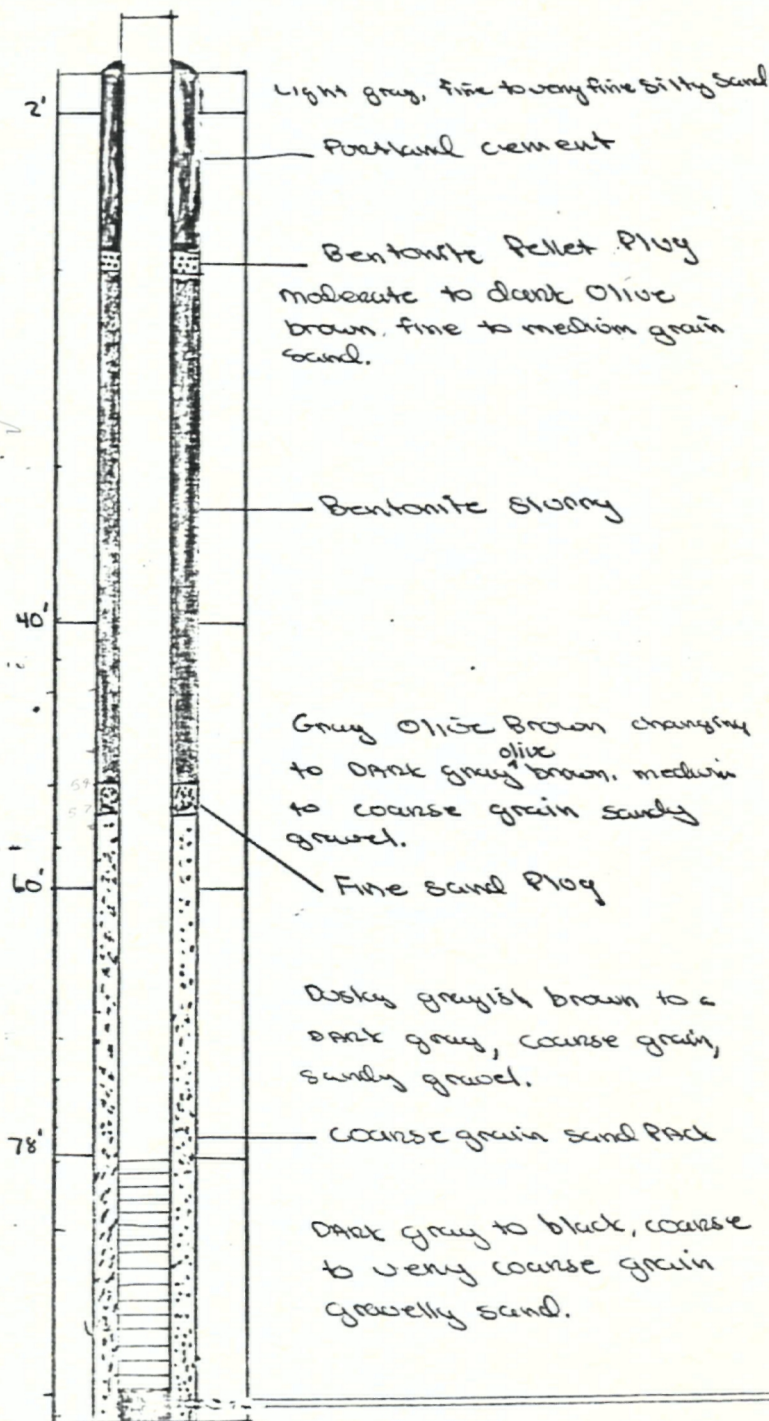 Light gray, fine to very fine silty sand
2'
Portland cement
Bentonite Pellet Plug
moderate to dark Olive
brown, fine to medium grain
sand.
Bentonite slurry
40'
Gray Olive Brown changing
to DARK gray olive brown, medium
to coarse grain sandy
gravel.
Fine sand Plug
60'
Dusky grayish brown to a
DARK gray, coarse grain,
sandy gravel.
coarse grain sand PACK
78'
DARK gray to black, coarse
to very coarse grain
gravelly sand.